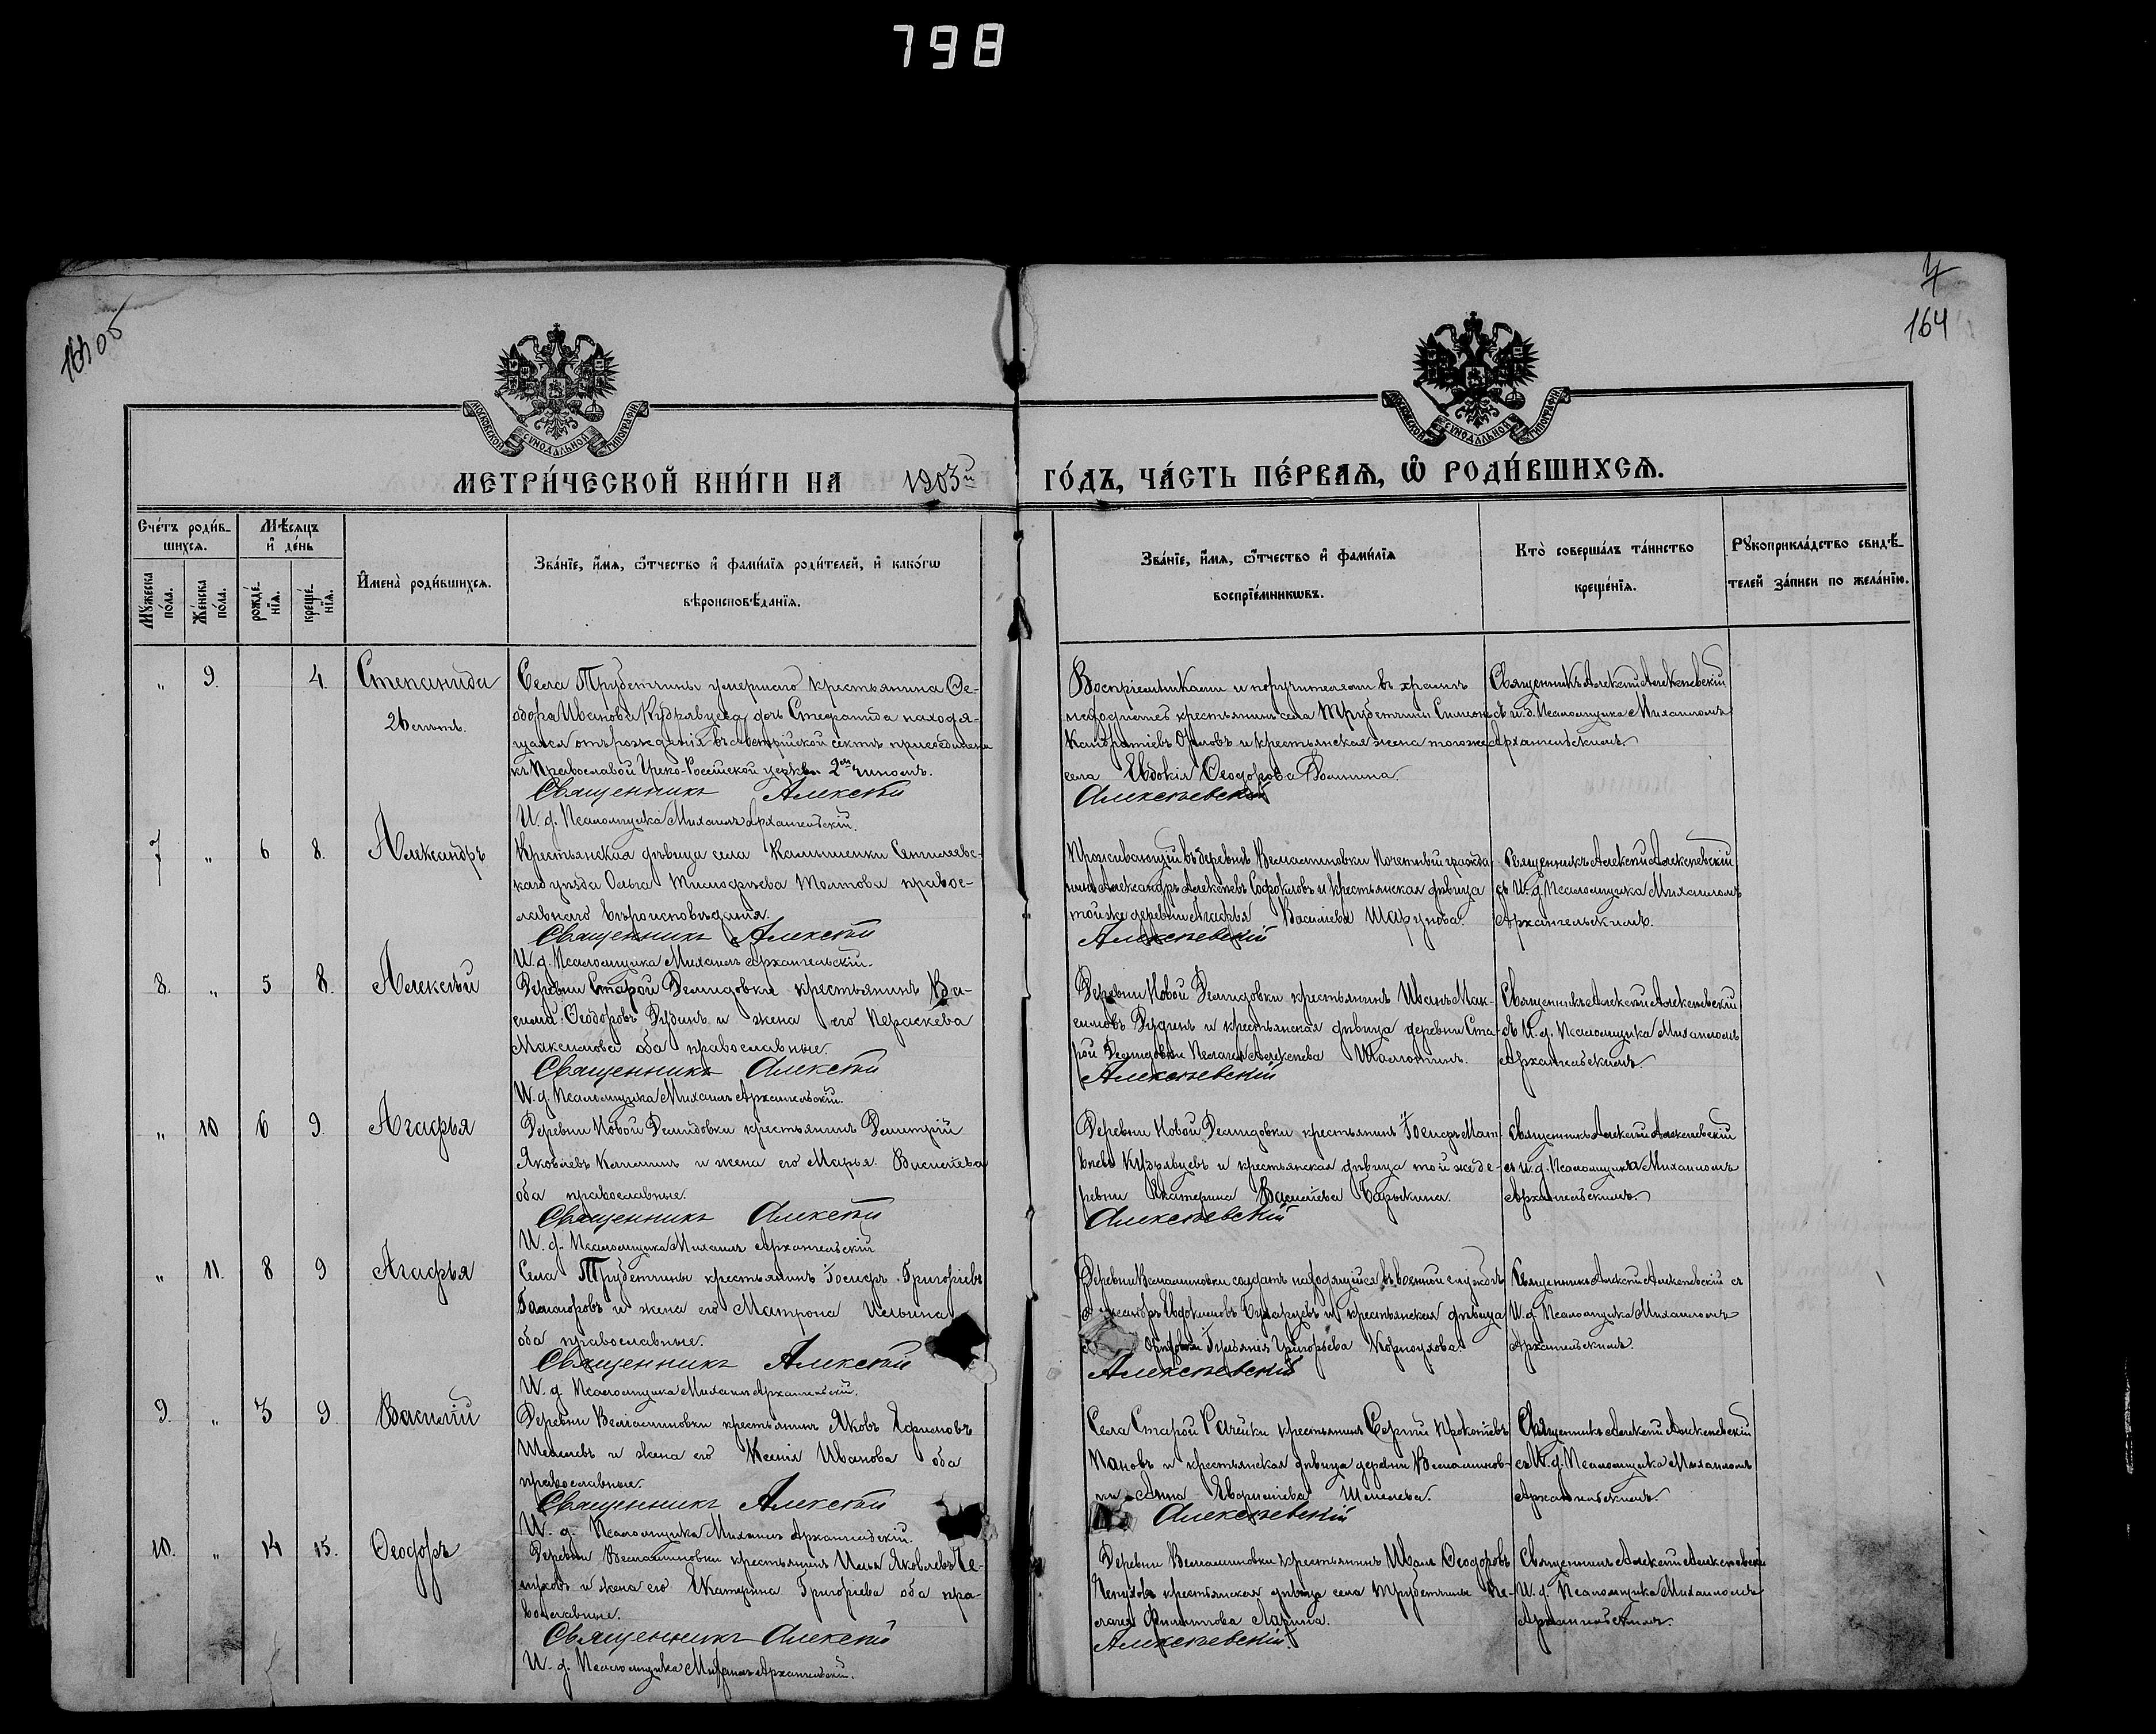 798
163 об
4
164
МОСКОВСКОЙ СУНОДАЛЬНОЙ ТИПОГРАФІИ
МОСКОВСКОЙ СУНОДАЛЬНОЙ ТИПОГРАФІИ
МЕТРИ́ЧЕСКОЙ КНИ́ГИ НА 1903й ГО́ДЪ, ЧА́СТЬ ПЕ́РВАѦ, Ѡ҆ РОДИ́ВШИХСѦ.
Сче́тъ роди́в-
шихсѧ.
Мѣ́сѧцъ
и҆ де́нь
Мꙋ́жеска по́ла.
Же́нска по́ла.
рожде́-нїѧ.
креще́-нїѧ.
И҆мена̀ роди́вшихсѧ.
Зва́нїе, и҆́мѧ, ѻ҆́тчество и҆ фами́лїѧ роди́телей, и҆ како́гѡ
вѣроисповѣ́данїѧ.
Зва́нїе, и҆́мѧ, ѻ҆́тчество и҆ фами́лїѧ
воспрїе́мникѡвъ.
Кто̀ соверша́лъ та́инство
креще́нїѧ.
Рꙋкоприкла́дство свидѣ́-
телей за́писи по жела́нїю.
„ 9. 4. Степанида
26 лѣтъ.
Села Трубетчины умершаго крестьянина Ѳе-
одора Иванова Кудрявцева дочь Стефанида находя-
щаяся отъ рожденія въ австрійской сектѣ присоединена
къ Православой Греко-Россійской церкви 2мъ чиномъ.
Священникъ Алексѣй
И. д. Псаломщика Михаилъ Архангельскій.
Воспріемниками и поручителями въ храмѣ
крестьянинъ села Трубетчины Симеонъ
Кандратіевъ Орловъ и крестьянская жена тогоже
села Евдокія Ѳеодорова Фомина.
Алексѣевскій
Священникъ Алексѣй Алексѣевскій
съ и. д. Псаломщика Михаиломъ
Архангельскимъ.
7 „ 6 8. Александръ
Крестьянская дѣвица села Камышенки Сенгилеевс-
каго уѣзда Ольга Тимофѣева Толтова правос-
лавнаго вѣроисповѣданія.
Священникъ Алексѣй
И. д. Псаломщика Михаилъ Архангельскій.
Проживающій въ деревнѣ Вельяминовки Почетный гражда-
нинъ Александръ Алексѣевъ Софокловъ и крестьянская дѣвица
тойже деревни Агафья Василіева Шарунова.
Алексѣевскій
Священникъ Алексѣй Алексѣевскій
съ И. д. Псаломщика Михаиломъ
Архангельскимъ.
8. „ 5 8. Алексѣй
Деревни Старой Демидовки крестьянинъ Ва-
силій Ѳеодоровъ Дудинъ и жена его Параскева
Максимова оба православные.
Священникъ Алексѣй
И. д. Псаломщика Михаилъ Архангельскій.
Деревни Новой Демидовки крестьянинъ Иванъ Мак-
симовъ Дудинъ и крестьянская дѣвица деревни Ста-
рой Демидовки Пелагія Алексѣева
Алексѣевскій
Священникъ Алексѣй Алексѣевскій
съ И. д. Псаломщика Михаиломъ
Архангельскимъ.
„ 10 6 9. Агафья
Деревни Новой Демидовки крестьянинъ Димитрій
Яковлевъ Калининъ и жена его Марья Василіева
оба православные.
Священникъ Алексѣй
И. д. Псаломщика Михаилъ Архангельскій
Деревни Новой Демидовки крестьянинъ Іосифъ Мат-
вѣевъ Кудрявцевъ и крестьянская дѣвица той же де-
ревни Екатерина Василіева Барыкина.
Алексѣевскій
Священникъ Алексѣй Алексѣевскій
съ и. д. Псаломщика Михаиломъ
Архангельскимъ.
„ 11. 8 9 Агафья
Села Трубетчины крестьянинъ Іосифъ Григоріевъ
и жена его Матрона Ильина
оба православные.
Священникъ Алексѣй
И. д. Псаломщика Михаилъ Архангельскій.
Деревни Вельяминовки солдатъ находящійся въ военной службѣ
Евдокимовъ Бухарцевъ и крестьянская дѣвица
Григорьева Корноухова.
Алексѣевскій
Священникъ Алексѣй Алексѣевскій съ
И. д. Псаломщика Михаиломъ
Архангельскимъ.
9. „ 3 9 Василій
Деревни Вельяминовки крестьянинъ Яковъ Ефимовъ
Шемелевъ и жена его Ксенія Иванова оба
православные.
Священникъ Алексѣй
И. д. Псаломщика Михаилъ Архангельскій.
Села Старой Рачейки крестьянинъ Сергій Прокопіевъ
Пановъ и крестьянская дѣвица деревни Вельяминов-
ки Анна Шемелева.
Алексѣевскій
Священникъ Алексѣй Алексѣевскій
съ И. д. Псаломщика Михаиломъ
Архангельскимъ.
10. „ 14 15. Ѳеодоръ
Деревни Вельяминовки крестьянинъ Илья Яковлевъ Че-
пуховъ и жена его Екатерина Григоріева оба пра-
вославные.
Священникъ Алексѣй
И. д. Псаломщика Михаилъ Архангельскій.
Деревни Вельяминовки крестьянинъ Иванъ Ѳеодоровъ
Чепуховъ крестьянская дѣвица села Трубетчины Пе-
лагея Филиппова Ларина.
Алексѣевскій
Священникъ Алексѣй Алексѣевскій
И. д. Псаломщика Михаиломъ
Архангельскимъ.